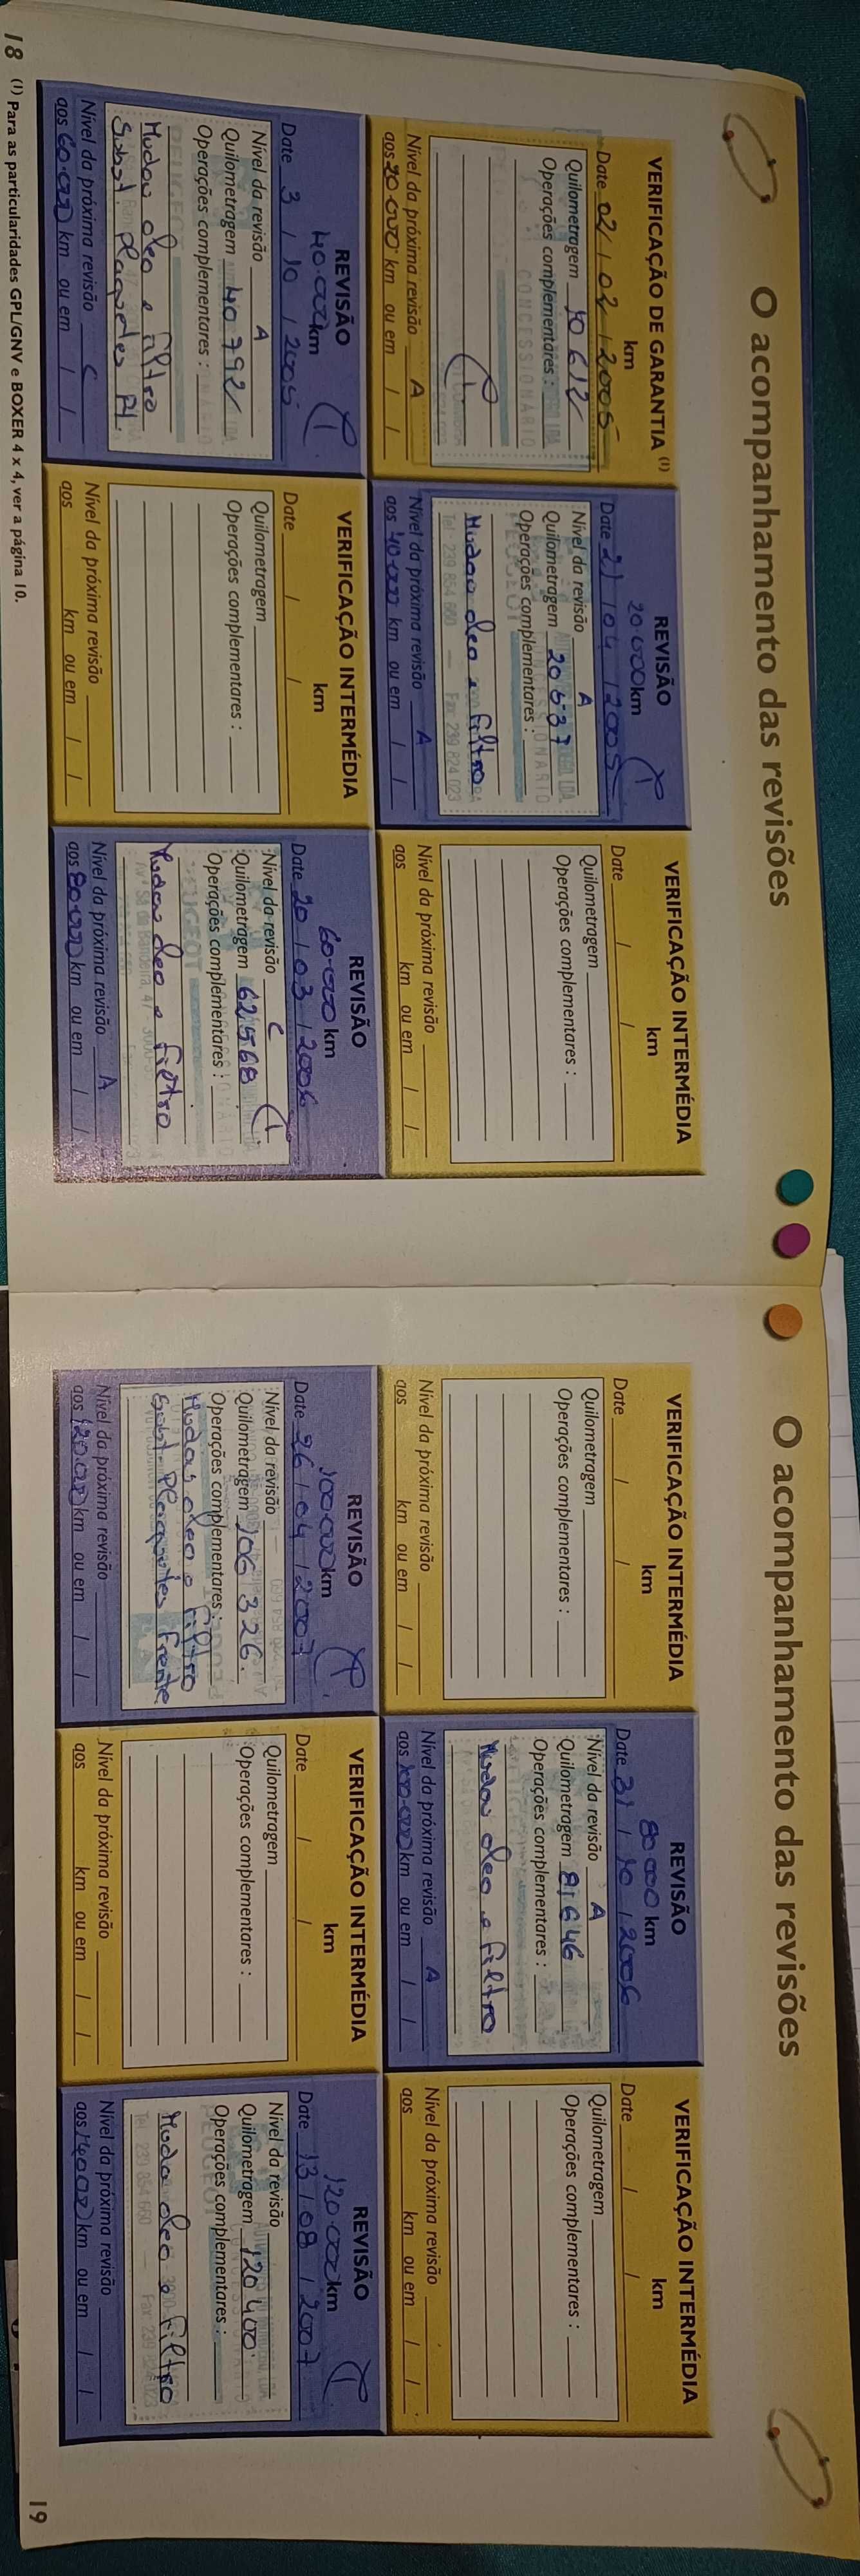 O acompanhamento das revisões
VERIFICAÇÃO DE GARANTIA (1)
km
Date 02 / 02 / 2005
Quilometragem 10612
Operações complementares :
Nível da próxima revisão A
aos 20.000 km ou em / /
REVISÃO
20.000 km
Date 21 / 04 / 2005
Nível da revisão A
Quilometragem 20537
Operações complementares :
Mudou oleo e filtro
Nível da próxima revisão A
aos 40.000 km ou em / /
VERIFICAÇÃO INTERMÉDIA
km
Date / /
Quilometragem
Operações complementares :
Nível da próxima revisão
aos km ou em / /
REVISÃO
40.000 km
Date 3 / 10 / 2005
Nível da revisão A
Quilometragem 40792
Operações complementares :
Mudou oleo e filtro
Subst. plaquetes Ft.
Nível da próxima revisão C
aos 60.000 km ou em / /
VERIFICAÇÃO INTERMÉDIA
km
Date / /
Quilometragem
Operações complementares :
Nível da próxima revisão
aos km ou em / /
REVISÃO
60.000 km
Date 20 / 03 / 2006
Nível da revisão C
Quilometragem 62568
Operações complementares :
Mudou oleo e filtro
Nível da próxima revisão A
aos 80.000 km ou em / /
18 (1) Para as particularidades GPL/GNV e BOXER 4 x 4, ver a página 10.
O acompanhamento das revisões
VERIFICAÇÃO INTERMÉDIA
km
Date / /
Quilometragem
Operações complementares :
Nível da próxima revisão
aos km ou em / /
REVISÃO
80.000 km
Date 31 / 10 / 2006
Nível da revisão A
Quilometragem 81646
Operações complementares :
Mudou oleo e filtro
Nível da próxima revisão A
aos 100.000 km ou em / /
VERIFICAÇÃO INTERMÉDIA
km
Date / /
Quilometragem
Operações complementares :
Nível da próxima revisão
aos km ou em / /
REVISÃO
100.000 km
Date 26 / 04 / 2007
Nível da revisão
Quilometragem 106326.
Operações complementares :
Mudou oleo e filtro
Subst. Plaquetes frente
Nível da próxima revisão
aos 120.000 km ou em / /
VERIFICAÇÃO INTERMÉDIA
km
Date / /
Quilometragem
Operações complementares :
Nível da próxima revisão
aos km ou em / /
REVISÃO
120.000 km
Date 13 / 08 / 2007
Nível da revisão
Quilometragem 120400
Operações complementares :
Mudou oleo e filtro
Nível da próxima revisão
aos 140.000 km ou em / /
19